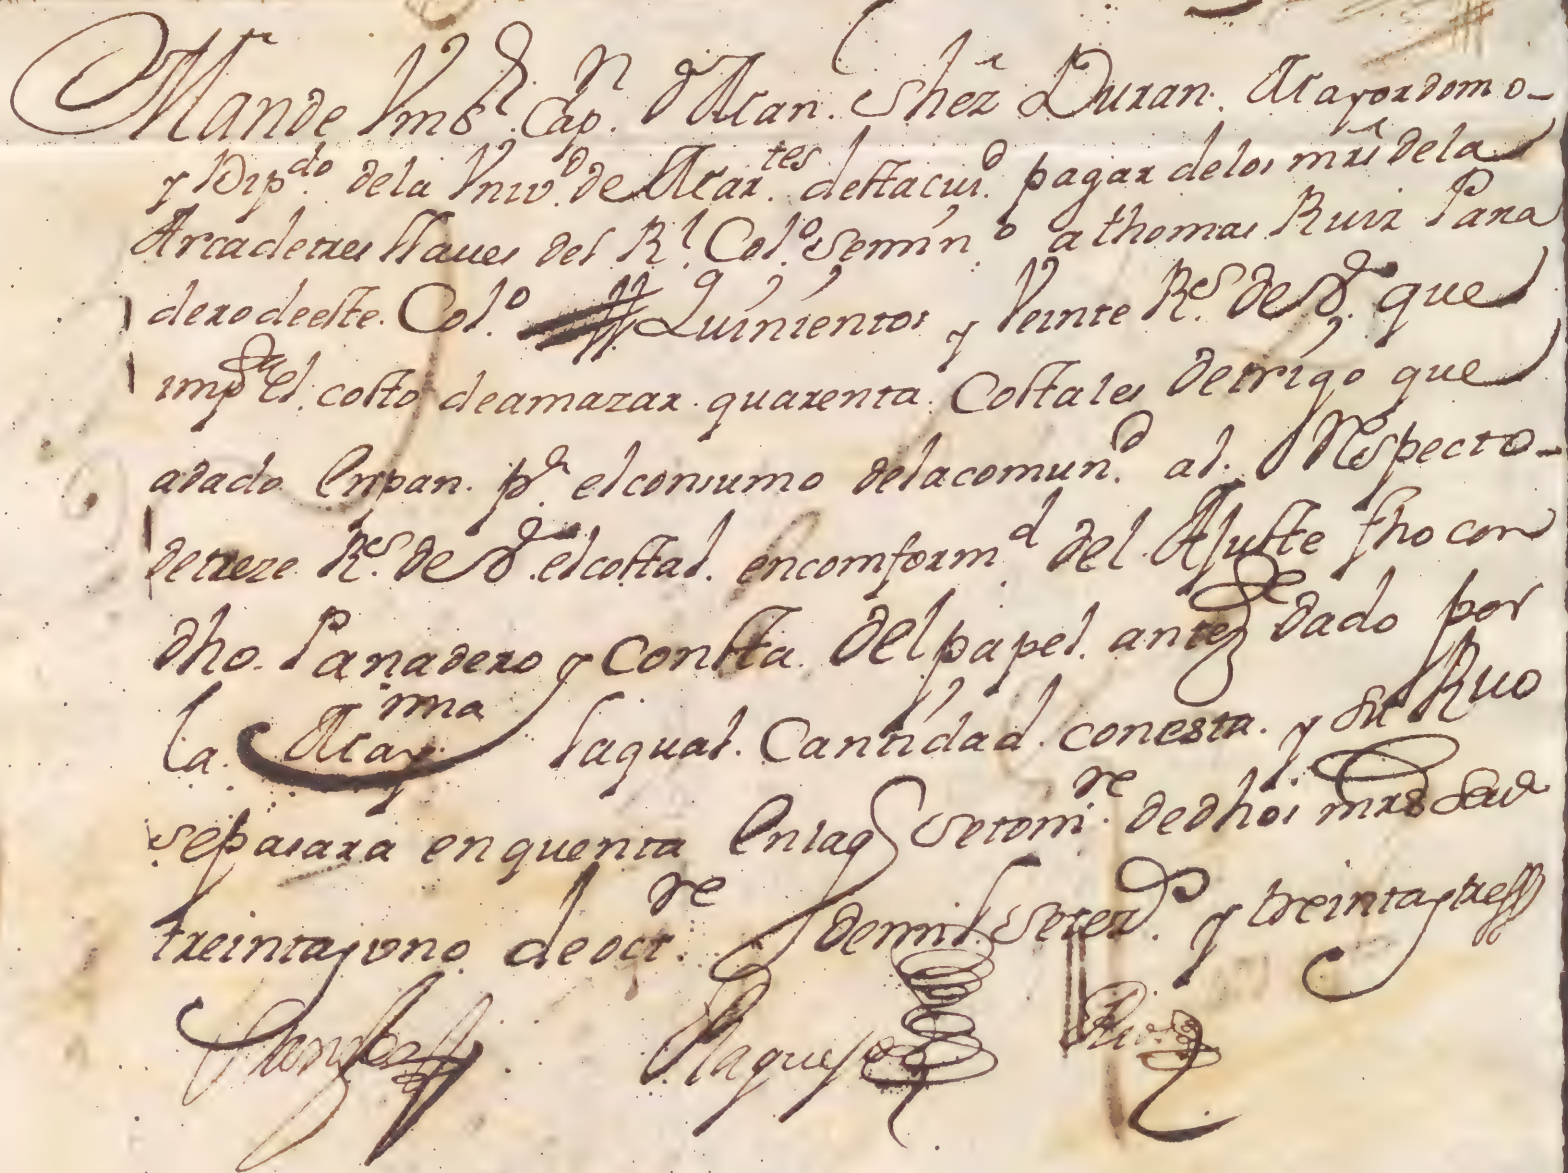 Mande Vms.r Cap.n d Man. Shez Duran. Mayordomo
y Dip.do de la Vniv.d de Mar.tes destaciu.d pagar delos mrs dela
Arcadetres llaues del R.l Col.o Semin.o a thomas Ruiz Pana
dero deeste Col.o Quinientos y Veinte R.s de Pta que
imp.ta El costo deamazar quarenta Costales detrigo que
adado Enpan p.a elconsumo delacomun.d al Respecto
detreze R.s de Pta el costal. encomform.d del Ajuste fho con
dho. Panadero y Consta del papel. antez.te dado por
la May.ma laqual. Cantidad conesta. y su Rvo
sepasara enquenta Enlaq setom.re dedhos mrs Seua
treintayuno de oct.re demil Setez.os y treintaytress
Vasquez